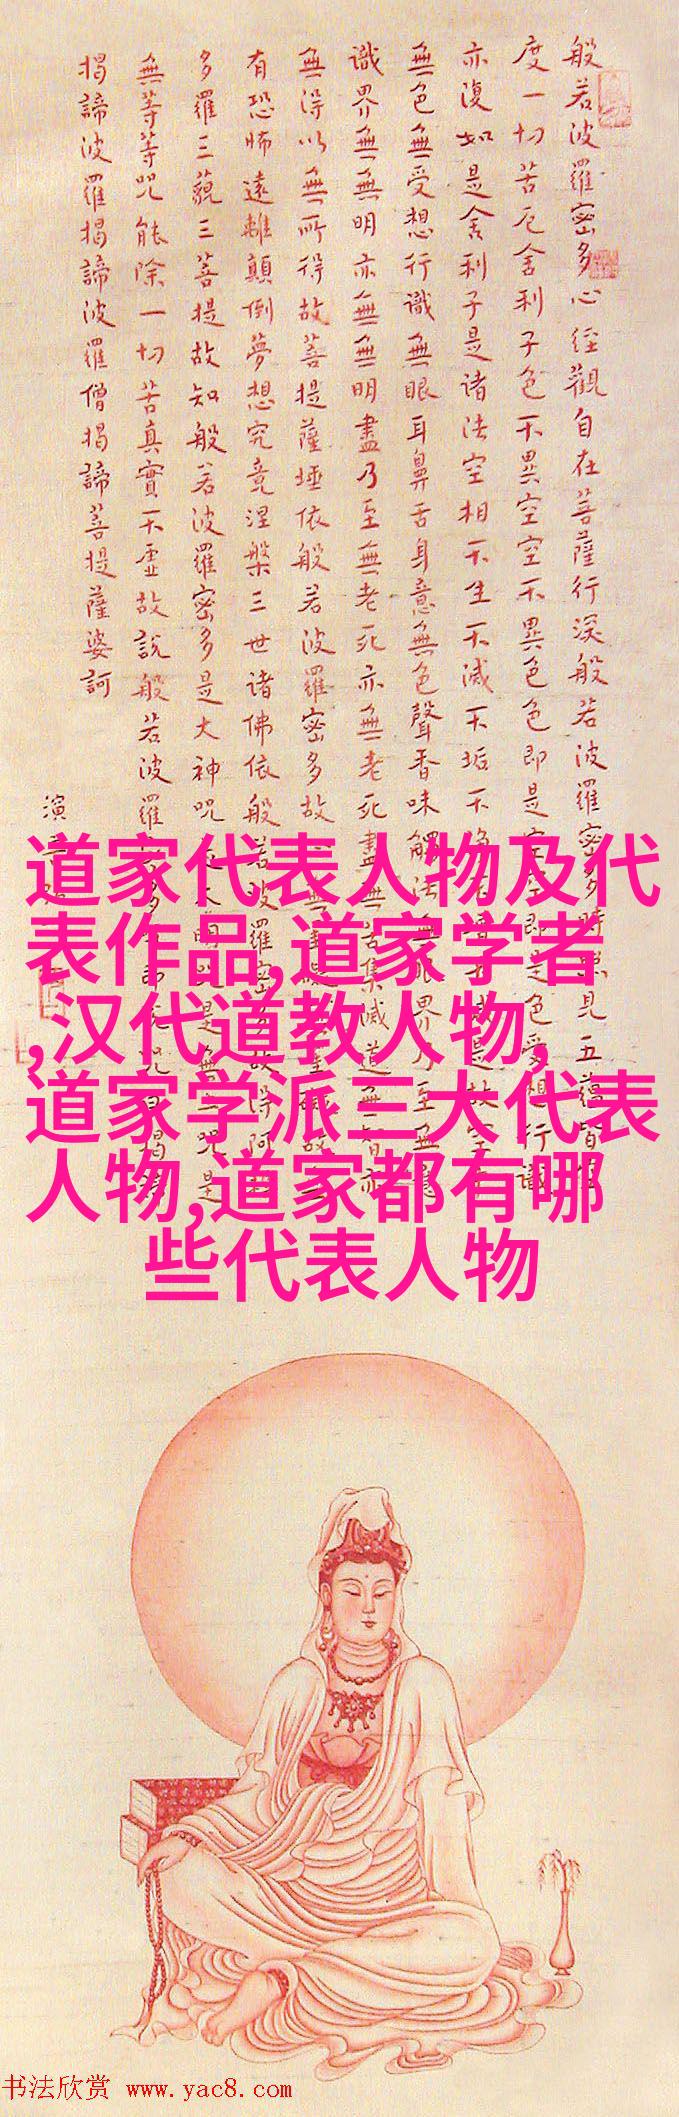 般若波羅密多心經觀自在菩薩行深般若波羅密多時照見五蘊皆
度一切苦厄舍利子色不異空空不異色色即是空空即是色受想行識
亦復如是舍利子是诸法空相不生不滅不垢不是故空
無色無受想行識無眼耳鼻舌身意無色聲香味觸法無眼界乃至無意
識界無無明亦無無明盡乃至無老死亦無老死盡無苦集滅道無智亦
無得以無所得故菩提薩埵依般若波羅密多故無罣礙故無
有恐怖遠離顛倒夢想究竟涅槃三世诸佛依般若波羅密多故得阿耨
多羅三藐三菩提故知般若波羅密多是大神咒是大明咒是無上咒是
無等等咒能除一切苦真實不虛故説般若波羅多即咒曰揭
揭諦波羅揭諦波羅僧揭諦菩提薩婆訶
演
道家代表人物及代
表作品,道家学者
,汉代道教人物,
道家学派三大代表
人物,道家都有哪
些代表人物
书法欣赏 www.yac8.com